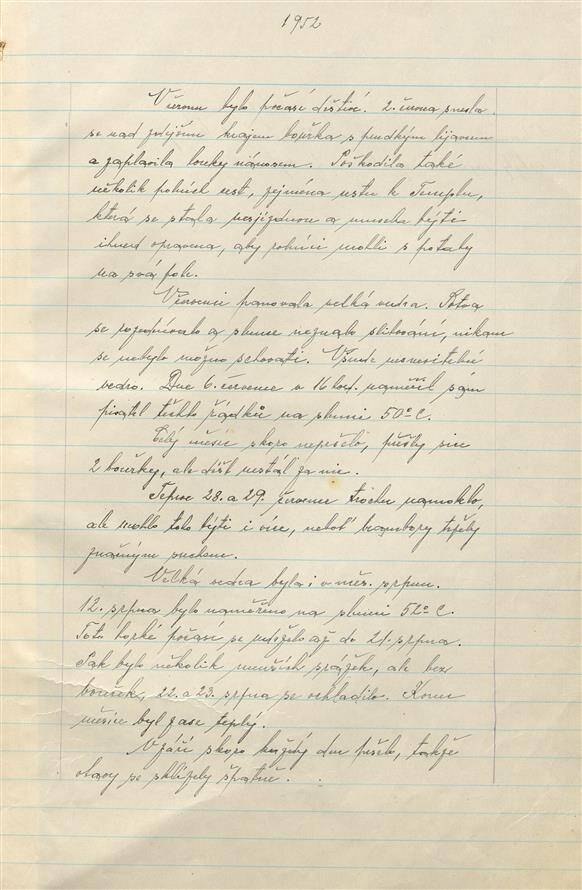 1952
V červnu bylo počasí deštivé. 2. června snesla
se nad zdejším krajem bouřka s prudkým lijavcem
a zaplavila louky nánosem. Poškodila také
několik polních cest, zejména cestu k Templu,
která se stala nesjízdnou a musela býti
ihned opravena, aby rolníci mohli s potahy
na svá pole.
V červenci panovala velká vedra. Půda
se rozpukávala a slunce neznalo slitování, nikam
se nebylo možno schovati. Všude nesnesitelné
vedro. Dne 6. července v 16 hod. naměřil sám
pisatel těchto řádků na slunci 50° C.
Celý měsíc skoro nepršelo, přešly sice
2 bouřky, ale déšť nestál za nic.
Teprve 28. a 29. července trochu namoklo,
ale mohlo toho býti i více, neboť brambory trpěly
značným suchem.
Velká vedra byla i v měs. srpnu.
12. srpna bylo naměřeno na slunci 52° C.
Toto horké počasí se udrželo až do 21. srpna.
Pak bylo několik menších srážek, ale bez
bouřek, 22. a 23. srpna se ochladilo. Konec
měsíce byl zase teplý.
V září skoro každý den pršelo, takže
otavy se sklízely špatně.